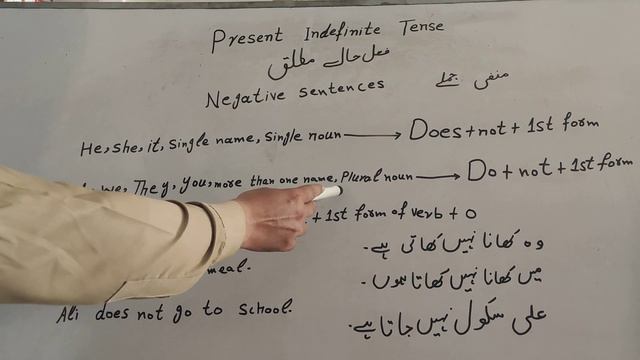 Present Indefinite Tense
فعل حال مطلق
Negative sentences منفی جملے
He, she, it, single name, single noun → Does + not + 1st form
we, They, you, more than one name, Plural noun → Do + not + 1st form
+ 1st form of verb + O
وہ کھانا نہیں کھاتی ہے۔
meal. میں کھانا نہیں کھاتا ہوں۔
Ali does not go to school. علی سکول نہیں جاتا ہے۔